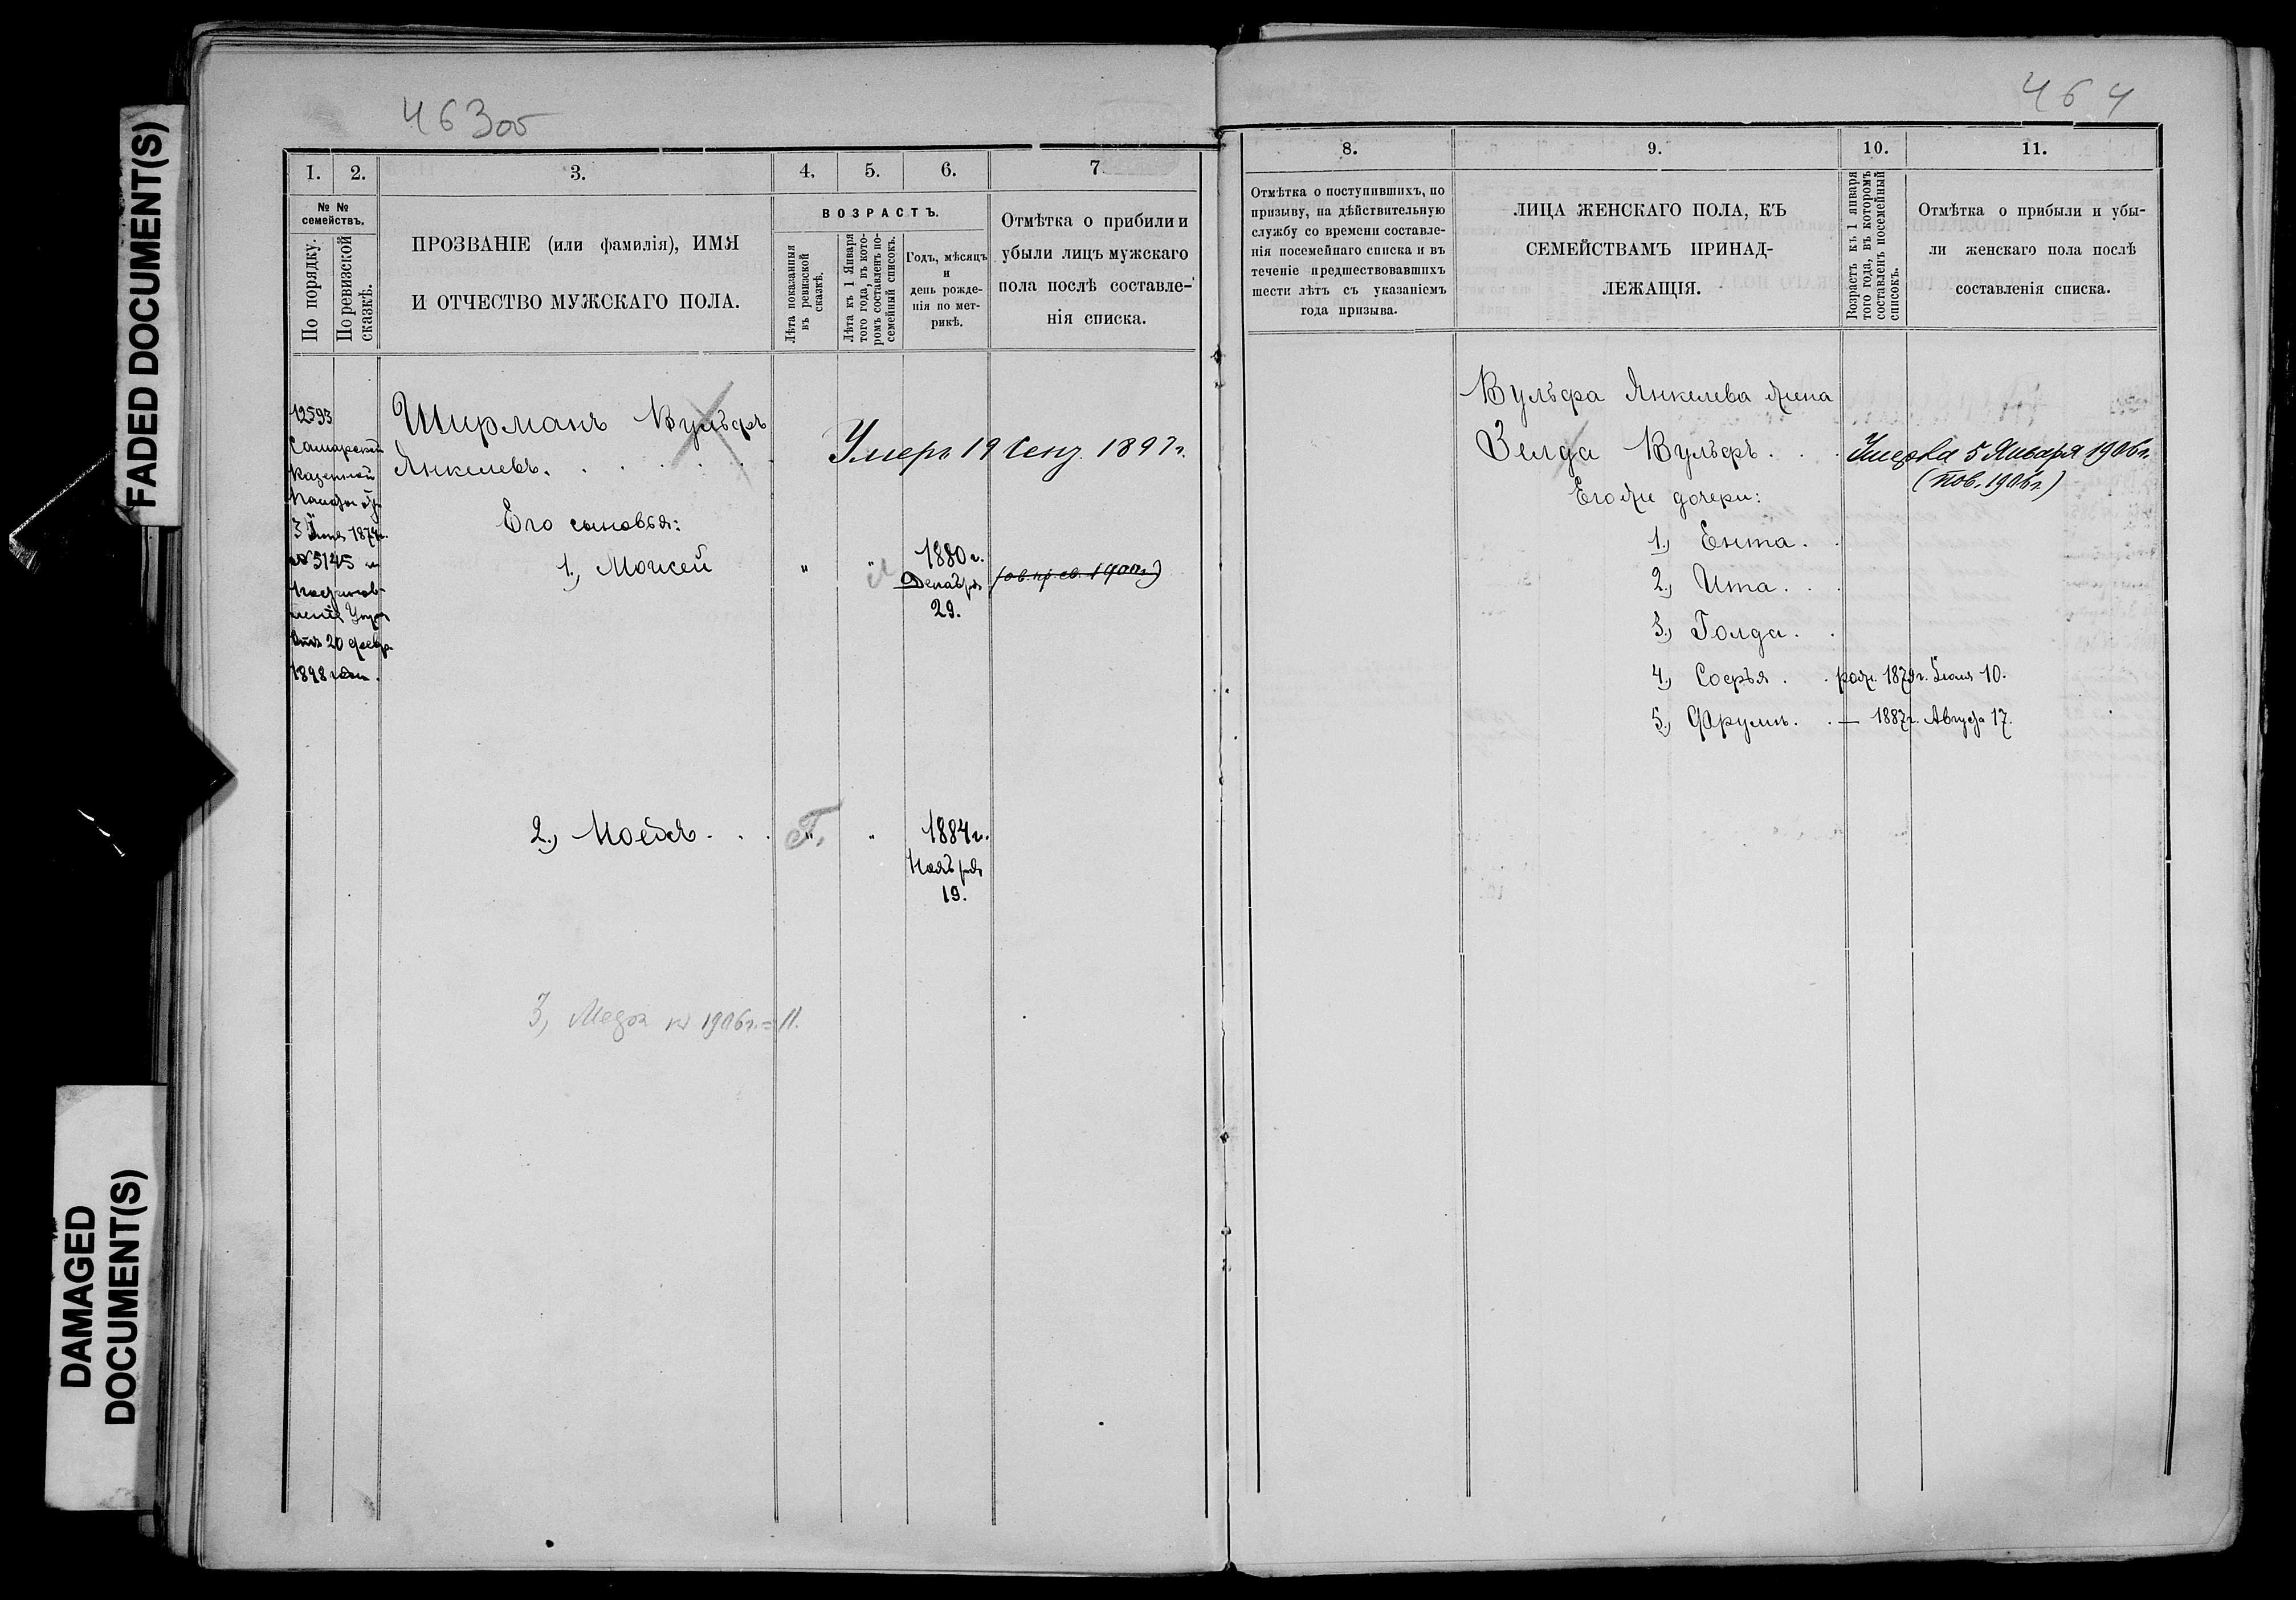 FADED DOCUMENT(S)
DAMAGED
DOCUMENT(S)
463об
1. 2. 3. 4. 5. 6. 7
№ №
семействъ.
По порядку.
По ревизской
сказкѣ.
ПРОЗВАНІЕ (или фамилія), ИМЯ
И ОТЧЕСТВО МУЖСКАГО ПОЛА.
ВОЗРАСТЪ.
Лѣта показанныя
въ ревизской
сказкѣ.
Лѣта къ 1 Января
того года, въ кото-
ромъ составленъ по-
семейный списокъ.
Годъ, мѣсяцъ
и
день рожде-
нія по мет-
рикѣ.
Отмѣтка о прибили и
убыли лицъ мужскаго
пола послѣ составле-
нія списка.
12593
Самарской
Казенной
Палаты
3 Іюня 1874г.
№ 5145 и
20 февр.
1898 года.
Ширманъ Вульфъ
Янкелевъ.
Умеръ 19 Сент. 1897г.
Его сыновья:
1., Мойсей " " 1880г.
Декабря
29.
2., Моебсъ " " 1884г.
Ноября
19.
3, къ 1906г.=11.
464
8. 9. 10. 11.
Отмѣтка о поступившихъ, по
призыву, на дѣйствительную
службу со времени составле-
нія посемейнаго списка и въ
теченіе предшествовавшихъ
шести лѣтъ съ указаніемъ
года призыва.
ЛИЦА ЖЕНСКАГО ПОЛА, КЪ
СЕМЕЙСТВАМЪ ПРИНАД-
ЛЕЖАЩІЯ.
Возрастъ къ 1 января
того года, въ которомъ
составленъ посемейный
списокъ.
Отмѣтка о прибыли и убы-
ли женскаго пола послѣ
составленія списка.
Вульфа Янкелева жена
Зелда Вульфъ. Умерла 5 Января 1906г.
(пов. 1906г.)
Его же дочери:
1., Ента.
2., Ита.
3., Голда.
4., Софья. рожд. 1879г. Іюля 10.
5., Фрума. — 1887г. Августа 17.